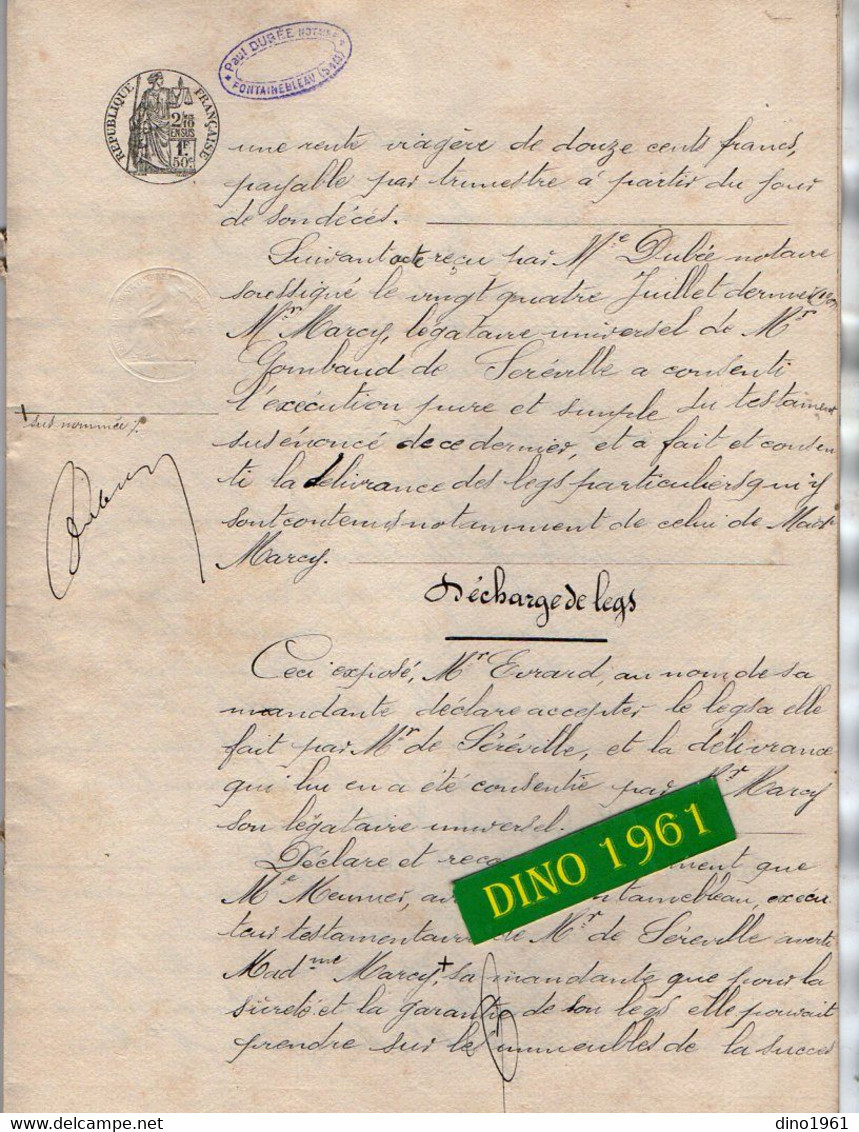 Paul DUBÉE NOTAIRE
FONTAINEBLEAU (S&M)
RÉPUBLIQUE FRANÇAISE
2/10
EN SUS
1F
50c
une rente viagère de douze cents francs,
payable par trimestre à partir du jour
de son décés.
Suivant acte reçu par Me Dubée notaire
soussigné le vingt quatre Juillet dernier
Mr Marcy, légataire universel de Mr
Gombaud de Séréville a consenti
l'exécution pure et simple du testament
susénoncé de ce dernier, et a fait et consen
ti la délivrance des legs particuliers qui y
sont contenus notamment de celui de Made
Marcy.
+ sus nommée /.
Décharge de legs
Ceci exposé, Mr Evrard, au nom de sa
mandante déclare accepter le legs a elle
fait par Mr de Séréville, et la délivrance
qui lui en a été consentie par Mr Marcy
son légataire universel.
Déclare et reco ment que
Me Meunier, av ntainebleau, exécu
teur testamentaire de Mr de Séréville averti
Madme Marcy,+ sa mandante que pour la
sûreté et la garantie de son legs elle pouvait
prendre sur les immeubles de la succes
DINO 1961
dino1961